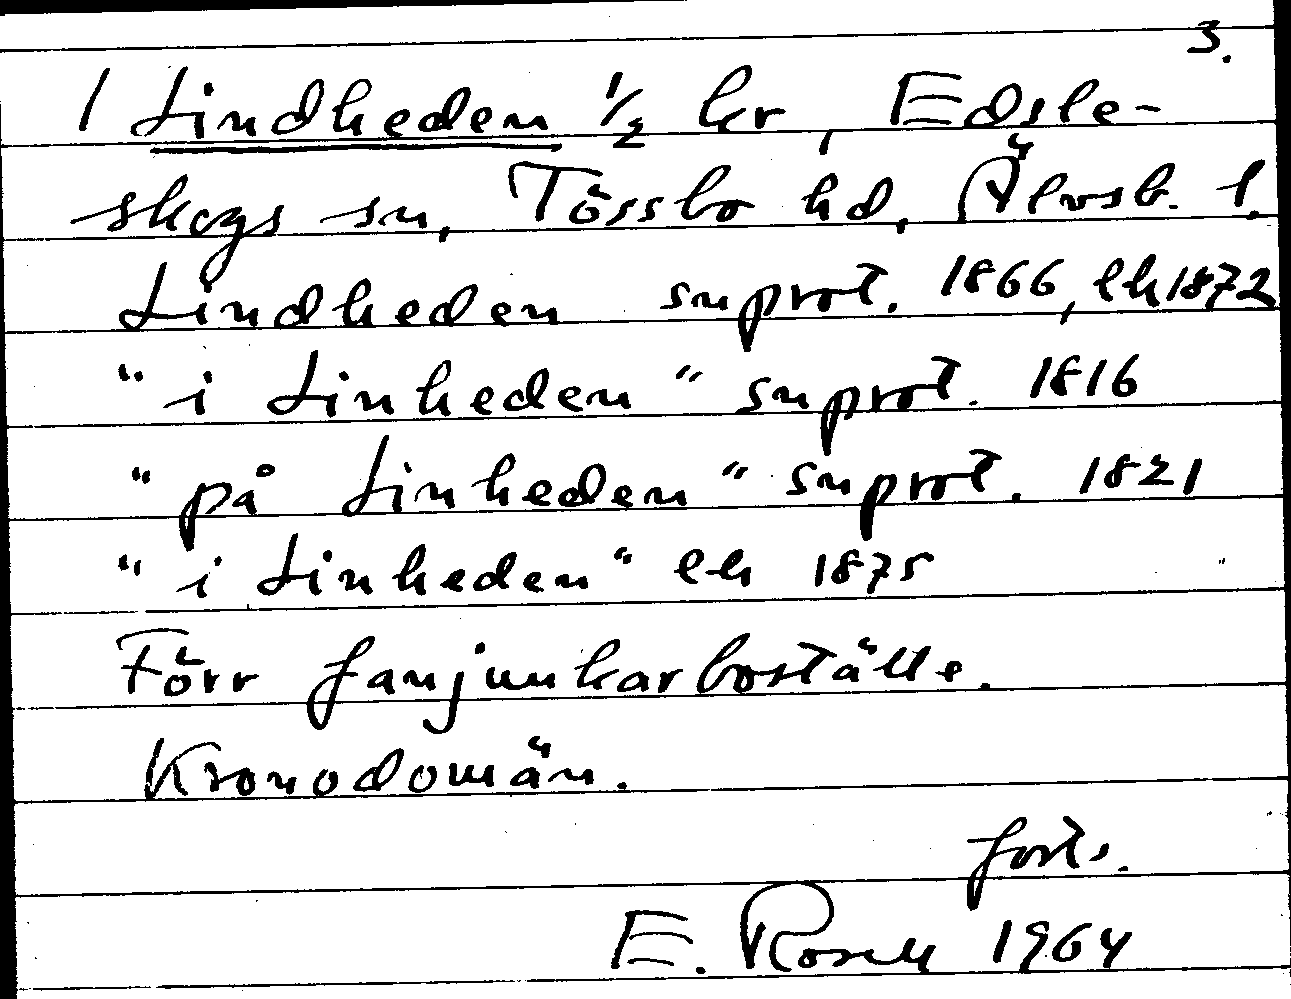 3.
1 Lindheden 1/2 kr, Edsle-
skogs sn, Tössbo hd, Älvsb. l.
Lindheden snprot. 1866, lh 1872
"i Linheden" snprot. 1816
"på Linheden" snprot. 1821
"i Linheden" lh 1875
Förr fanjunkarboställe.
Kronodomän.
forts.
E. Rosell 1964